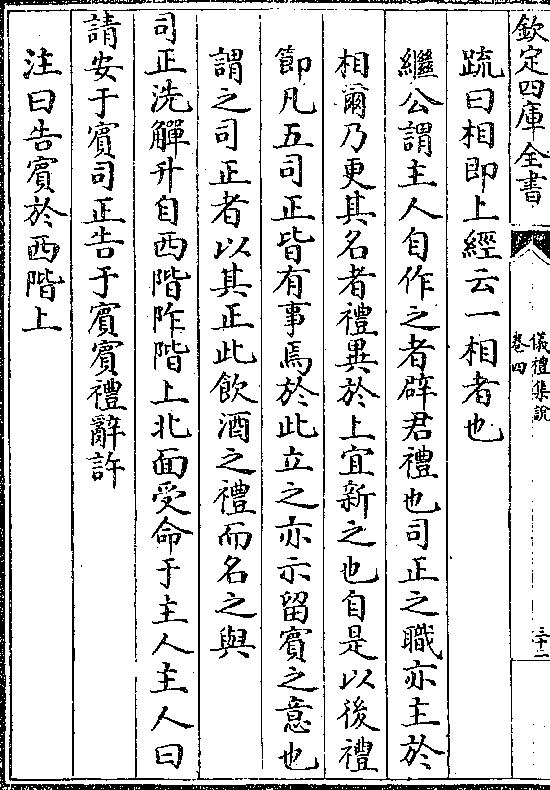 欽定四庫全書
儀禮集說
卷四
三十二
疏曰相即上經云一相者也
繼公謂主人自作之者辟君禮也司正之職亦主於
相爾乃更其名者禮異於上宜新之也自是以後禮
節凡五司正皆有事焉於此立之亦示留賓之意也
謂之司正者以其正此飲酒之禮而名之與
司正洗觶升自西階阼階上北面受命于主人主人曰
請安于賓司正告于賓賓禮辭許
注曰告賓於西階上